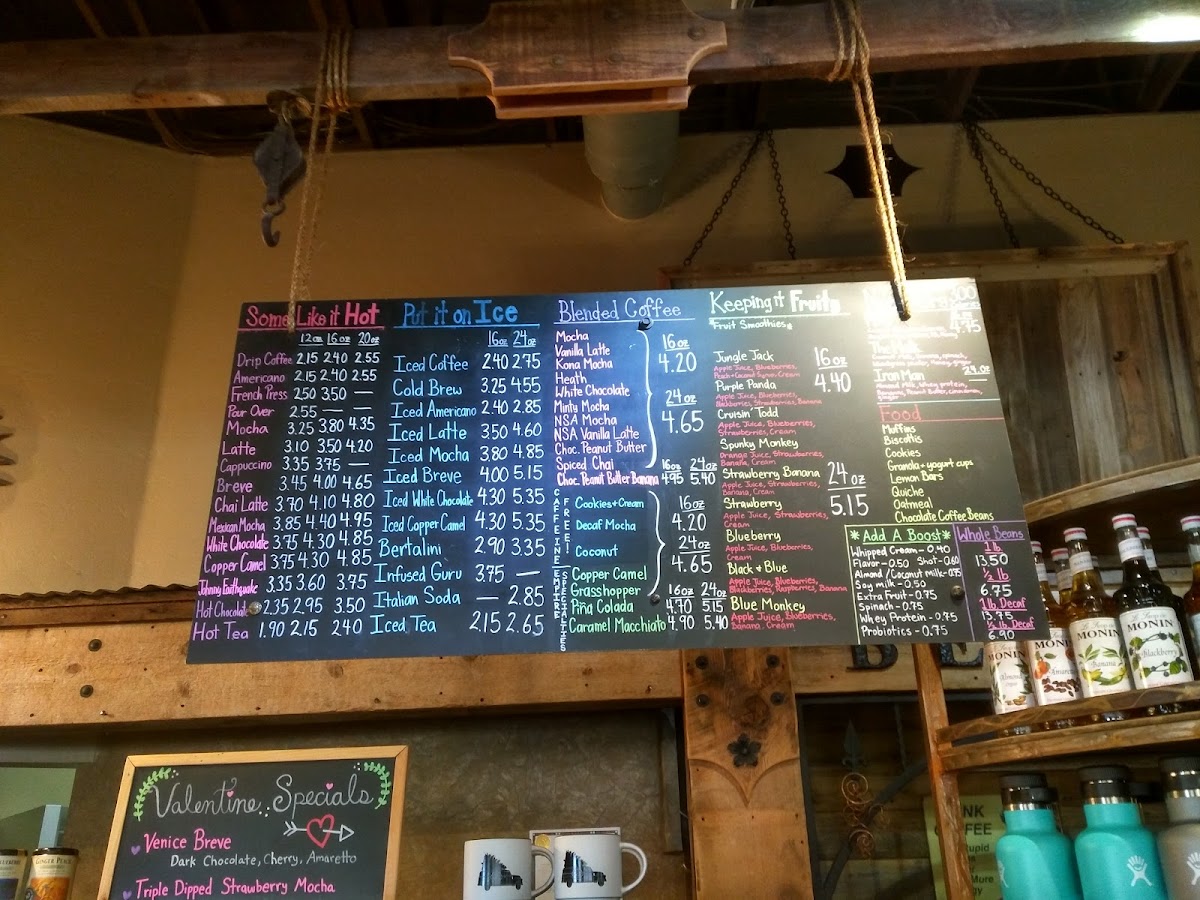 Some Like it Hot
12oz 16oz 20oz
Drip Coffee 2.15 2.40 2.55
Americano 2.15 2.40 2.55
French Press 2.50 3.50 —
Pour Over 2.55 — —
Mocha 3.25 3.80 4.35
Latte 3.10 3.50 4.20
Cappuccino 3.35 3.75 —
Breve 3.45 4.00 4.65
Chai Latte 3.70 4.10 4.80
Mexican Mocha 3.85 4.40 4.95
White Chocolate 3.75 4.30 4.85
Copper Camel 3.75 4.30 4.85
Johnny Earthquake 3.35 3.60 3.75
Hot Chocolate 2.35 2.95 3.50
Hot Tea 1.90 2.15 2.40
Put it on Ice
16oz 24oz
Iced Coffee 2.40 2.75
Cold Brew 3.25 4.55
Iced Americano 2.40 2.85
Iced Latte 3.50 4.60
Iced Mocha 3.80 4.85
Iced Breve 4.00 5.15
Iced White Chocolate 4.30 5.35
Iced Copper Camel 4.30 5.35
Bertalini 2.90 3.35
Infused Guru 3.75 —
Italian Soda — 2.85
Iced Tea 2.15 2.65
Blended Coffee
Mocha
Vanilla Latte
Kona Mocha
Heath
White Chocolate
Minty Mocha
NSA Mocha
NSA Vanilla Latte
Choc. Peanut Butter
Spiced Chai
16oz
4.20
24oz
4.65
16oz 24oz
Choc. Peanut Butter Banana 4.95 5.40
CAFFEINE FREE!
Cookies + Cream
Decaf Mocha
Coconut
Copper Camel
16oz
4.20
24oz
4.65
EMPIRE SPECIALTIES
Grasshopper 16oz 24oz
Piña Colada 4.70 5.15
Caramel Macchiato 4.90 5.40
Keeping it Fruity
*Fruit Smoothies*
16oz
4.40
24oz
5.15
Jungle Jack
Apple Juice, Blueberries,
Peach + Coconut Syrup, Cream
Purple Panda
Apple Juice, Blueberries,
Blackberries, Strawberries, Banana
Cruisin' Todd
Apple Juice, Blueberries,
Strawberries, Cream
Spunky Monkey
Orange Juice, Strawberries,
Banana, Cream
Strawberry Banana
Apple Juice, Strawberries,
Banana, Cream
Strawberry
Apple Juice, Strawberries,
Cream
Blueberry
Apple Juice, Blueberries,
Cream
Black + Blue
Apple Juice, Blueberries,
Blackberries, Raspberries, Banana
Blue Monkey
Apple Juice, Blueberries,
Banana, Cream
4.75
Iron Man 24oz
Almond Milk, Whey protein,
Banana, Peanut Butter, cinnamon,
ginger
Food
Muffins
Biscottis
Cookies
Granola + yogurt cups
Lemon Bars
Quiche
Oatmeal
Chocolate Coffee Beans
*Add A Boost*
Whipped Cream - 0.40
Flavor - 0.50 Shot - 0.60
Almond/Coconut milk - .95
Soy milk - 0.50
Extra Fruit - 0.75
Spinach - 0.75
Whey Protein - 0.75
Probiotics - 0.75
Whole Beans
1 lb
13.50
½ lb
6.75
1 lb Decaf
½ lb Decaf
6.90
BE
MONIN
MONIN
MONIN
Banana
MONIN
Blackberry
Valentine Specials
Venice Breve
Dark Chocolate, Cherry, Amaretto
Triple Dipped Strawberry Mocha
GINGER PEACH